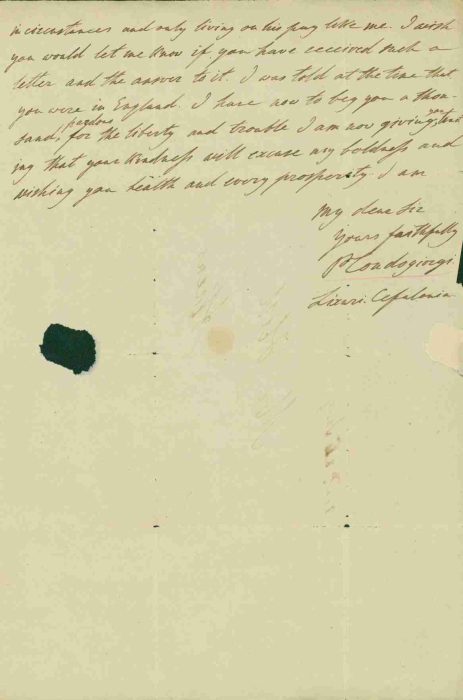 in circumstances and only living on his pay like me. I wish
you would let me know if you have received such a
letter and the answer to it. I was told at the time that
you were in England. I have now to beg you a thou-
pardons
sand, for the liberty and trouble I am now giving you,
ing that your kindness will excuse my boldness and
wishing you health and every prosperity. I am
My dear Sir
Yours faithfully
Lixuri. Cefalonia